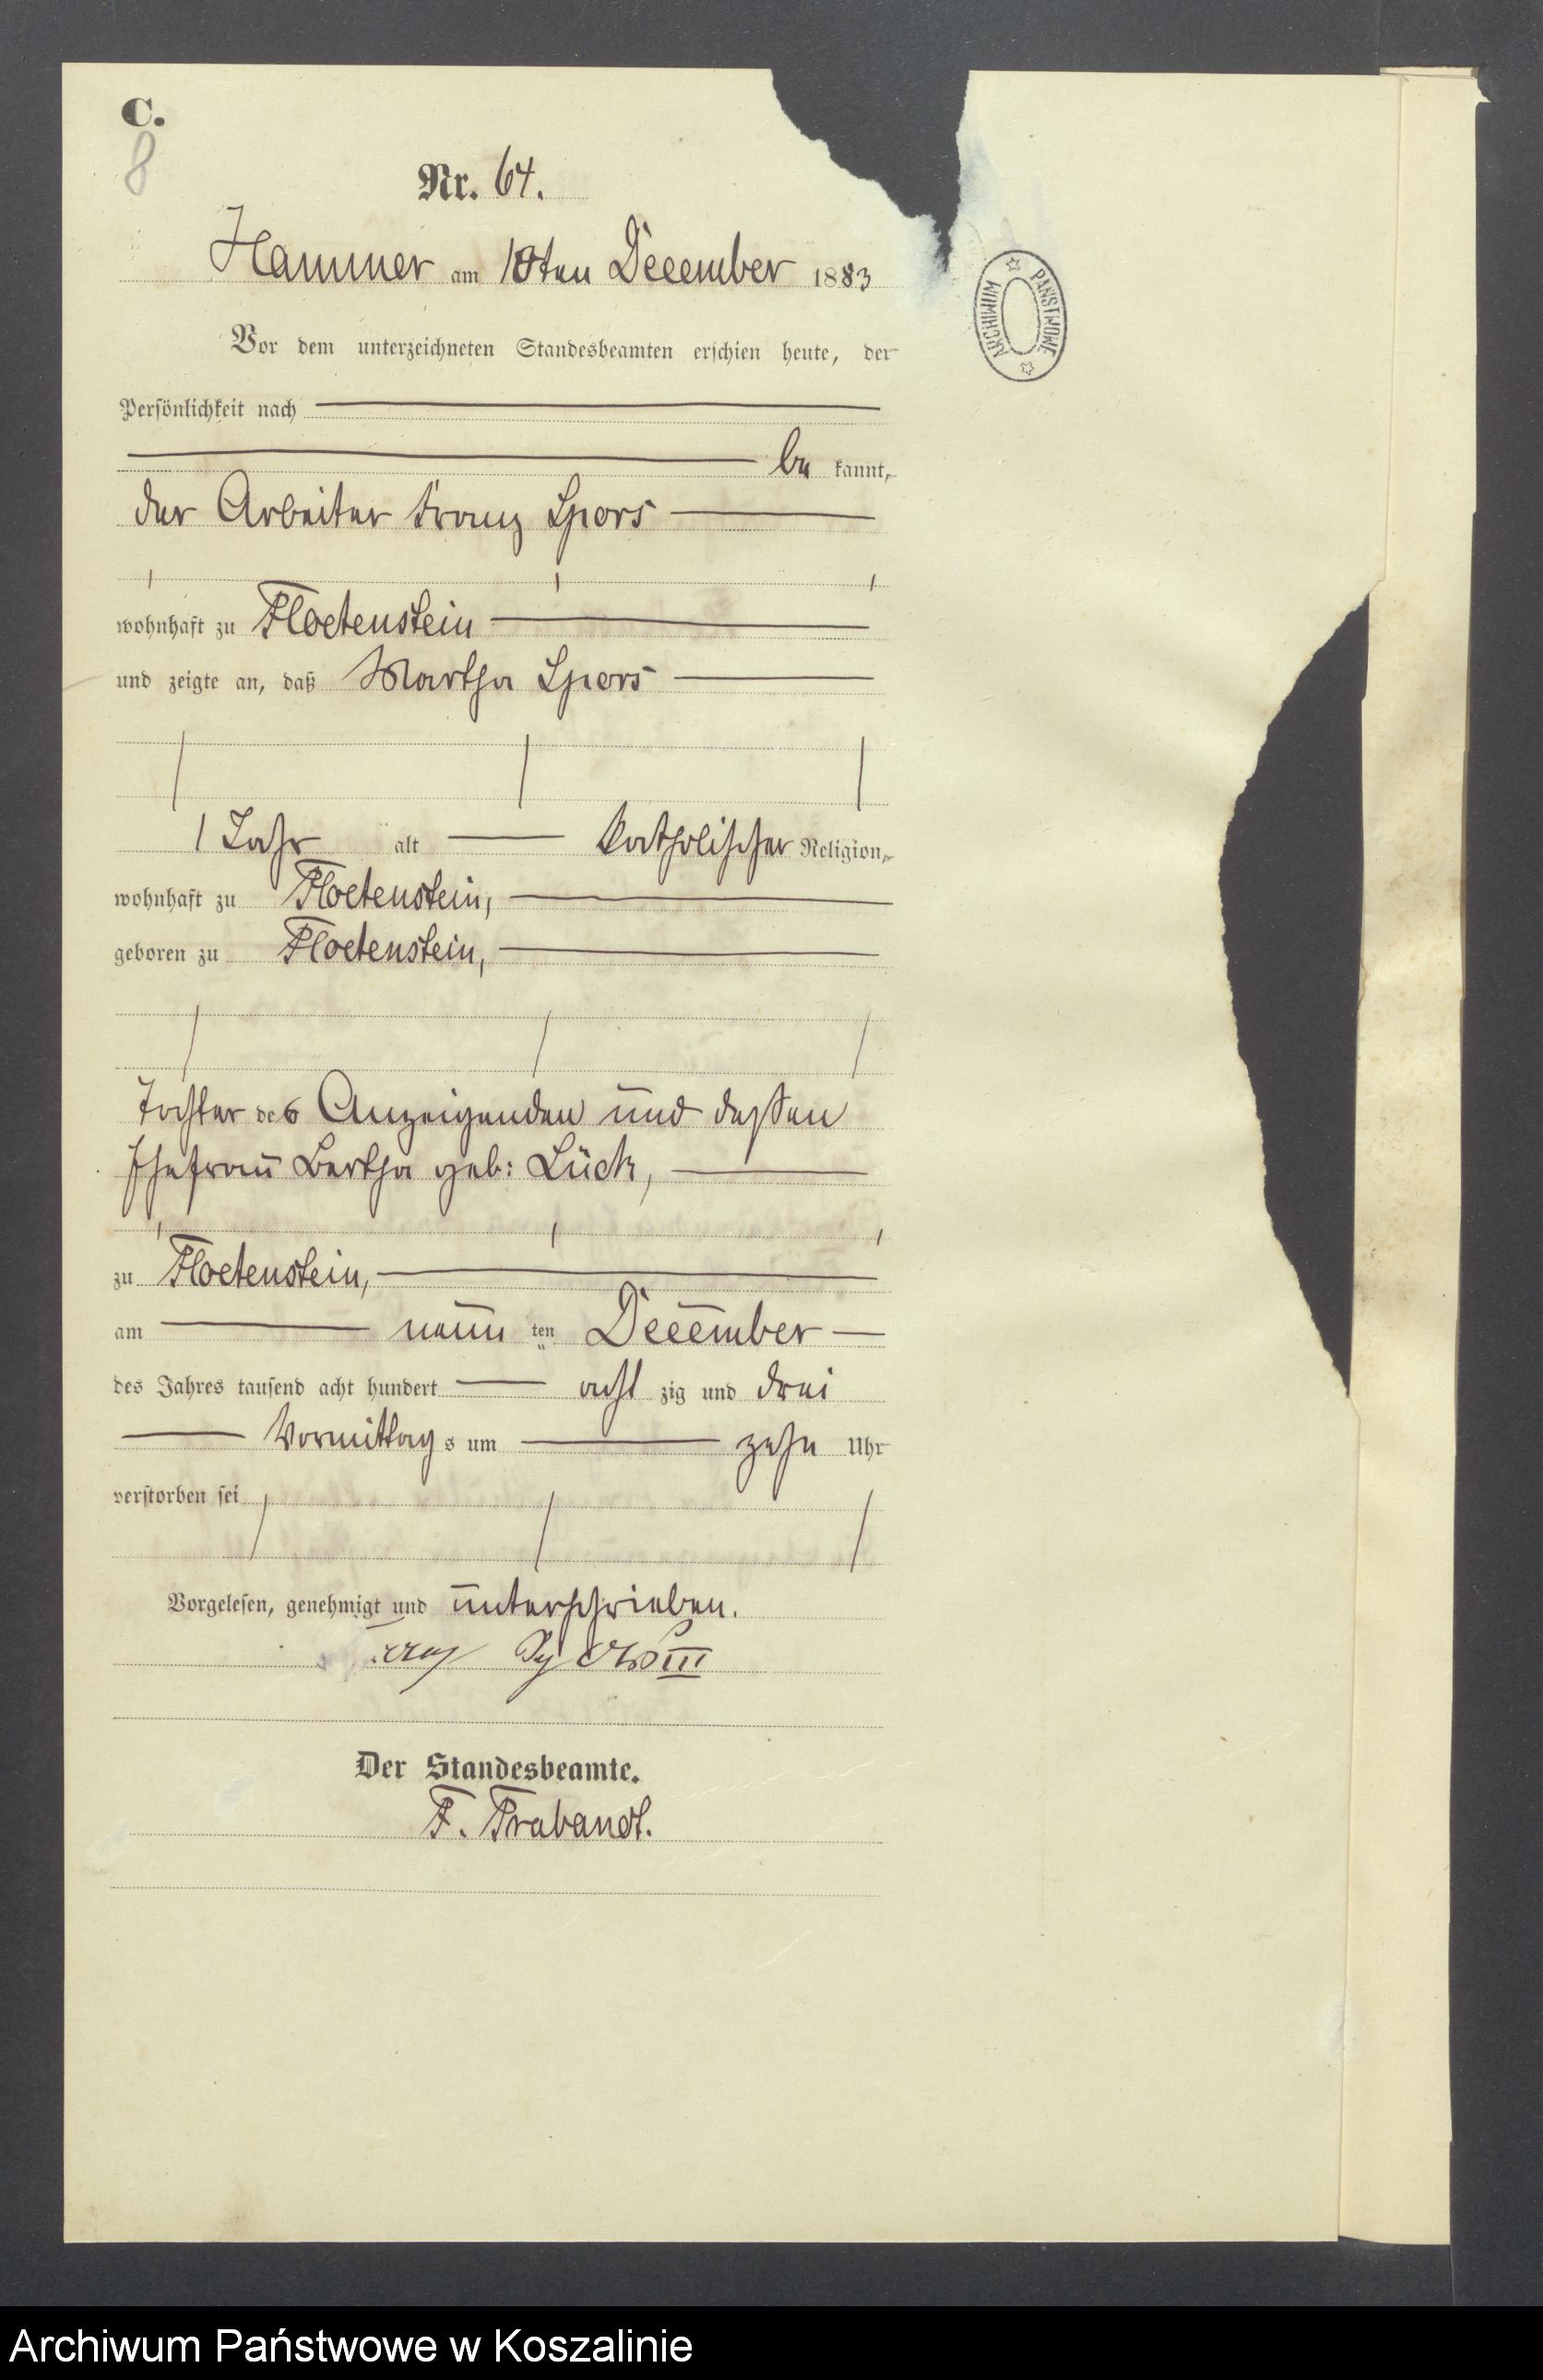 C.
8
Nr. 64.
Hammer am 10ten December 1883
Vor dem unterzeichneten Standesbeamten erschien heute, der
Persönlichkeit nach
be kannt,
der Arbeiter Franz Spors
wohnhaft zu Floetenstein
und zeigte an, daß Martha Spors
1 Jahr alt katholischer Religion,
wohnhaft zu Floetenstein,
geboren zu Floetenstein,
Tochter des Anzeigenden und dessen
Ehefrau Bertha geb: Lück,
zu Floetenstein,
am neun ten December
des Jahres tausend acht hundert acht zig und drei
Vormittag s um zehn Uhr
verstorben sei
Vorgelesen, genehmigt und unterschrieben.
III
Der Standesbeamte.
F. Frabandt.
ARCHIWUM PAŃSTWOWE
Archiwum Państwowe w Koszalinie